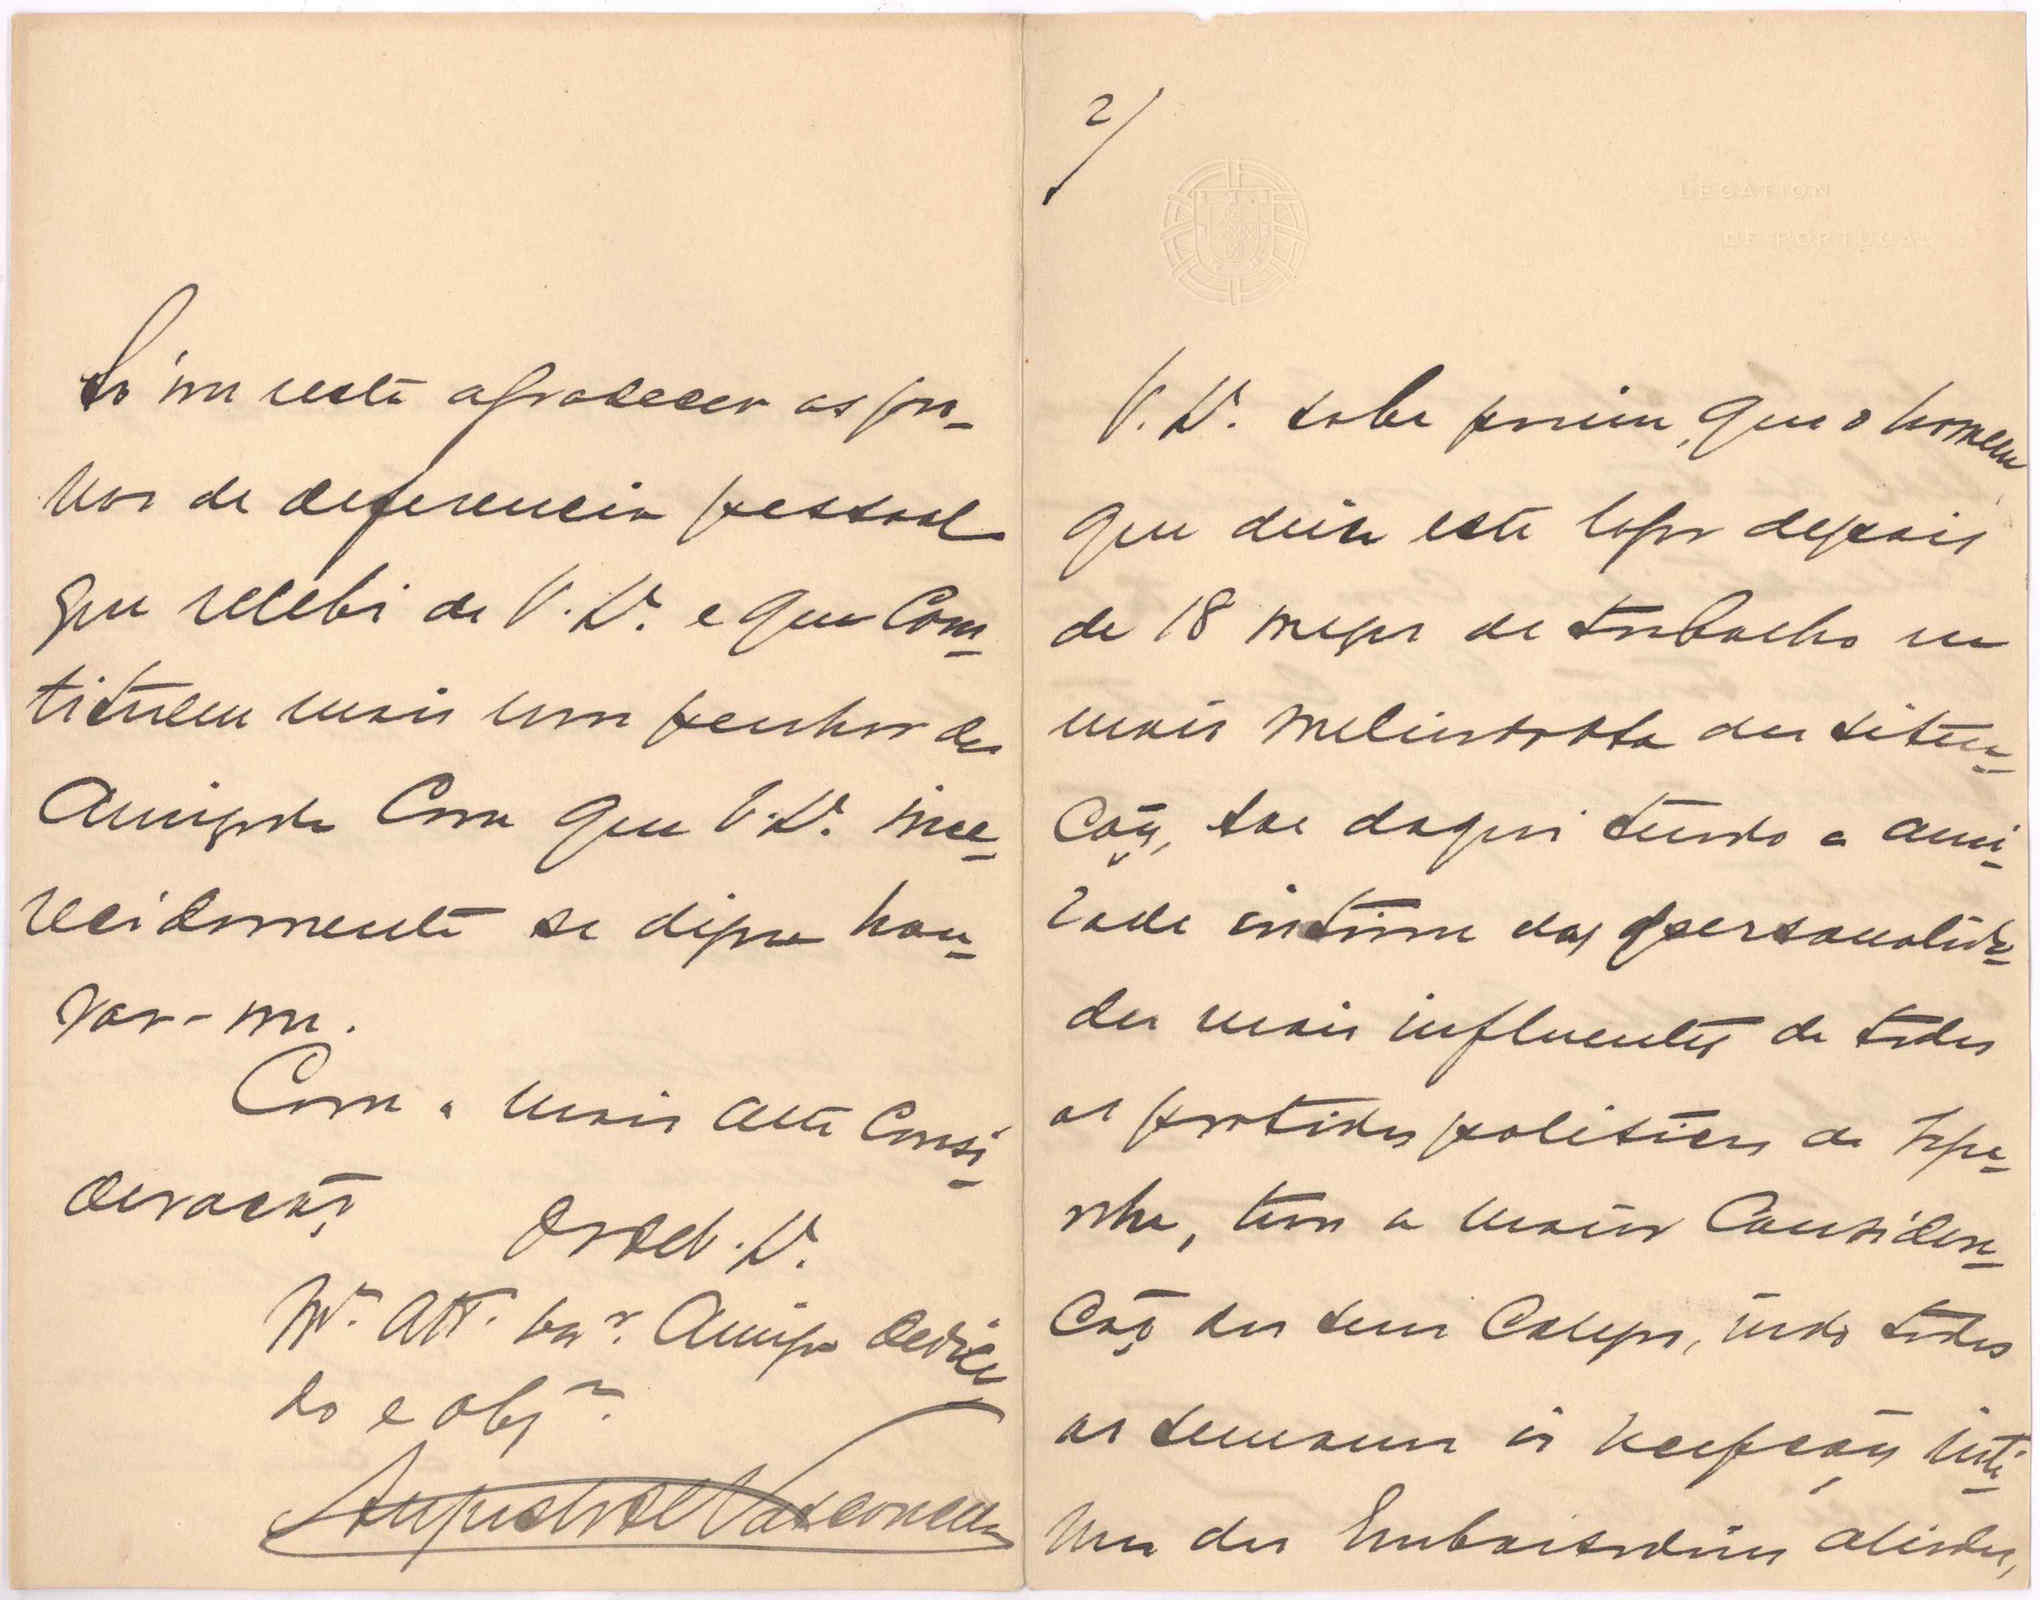 Só me resta agradecer as pro-
vas de deferencia pessoal
que recebi de V. Exª. e que cons-
tituem mais um penhor da
Amizade com que V. Exª. imme-
recidamente se digna hon-
rar-me.
Com a mais alta Consi-
deração
De V. Exª.
Mº. Attº. Venºr. Amigo dedica
do e obgº.
Augusto de Vasconcellos
2/
LEGATION
DE PORTUGAL
V. Exª. sabe porém, que o homem
que deixa este logar depois
de 18 mezes de trabalho na
mais melindrosa das situa-
ções, sae daqui tendo a ami-
zade intima das personalida-
des mais influentes de todos
os partidos politicos de Hespa-
nha, tem a maior Considera-
ção dos seus Colegas, indo todas
as semanas ás recepções inti-
mas dos Embaixadores aliados,